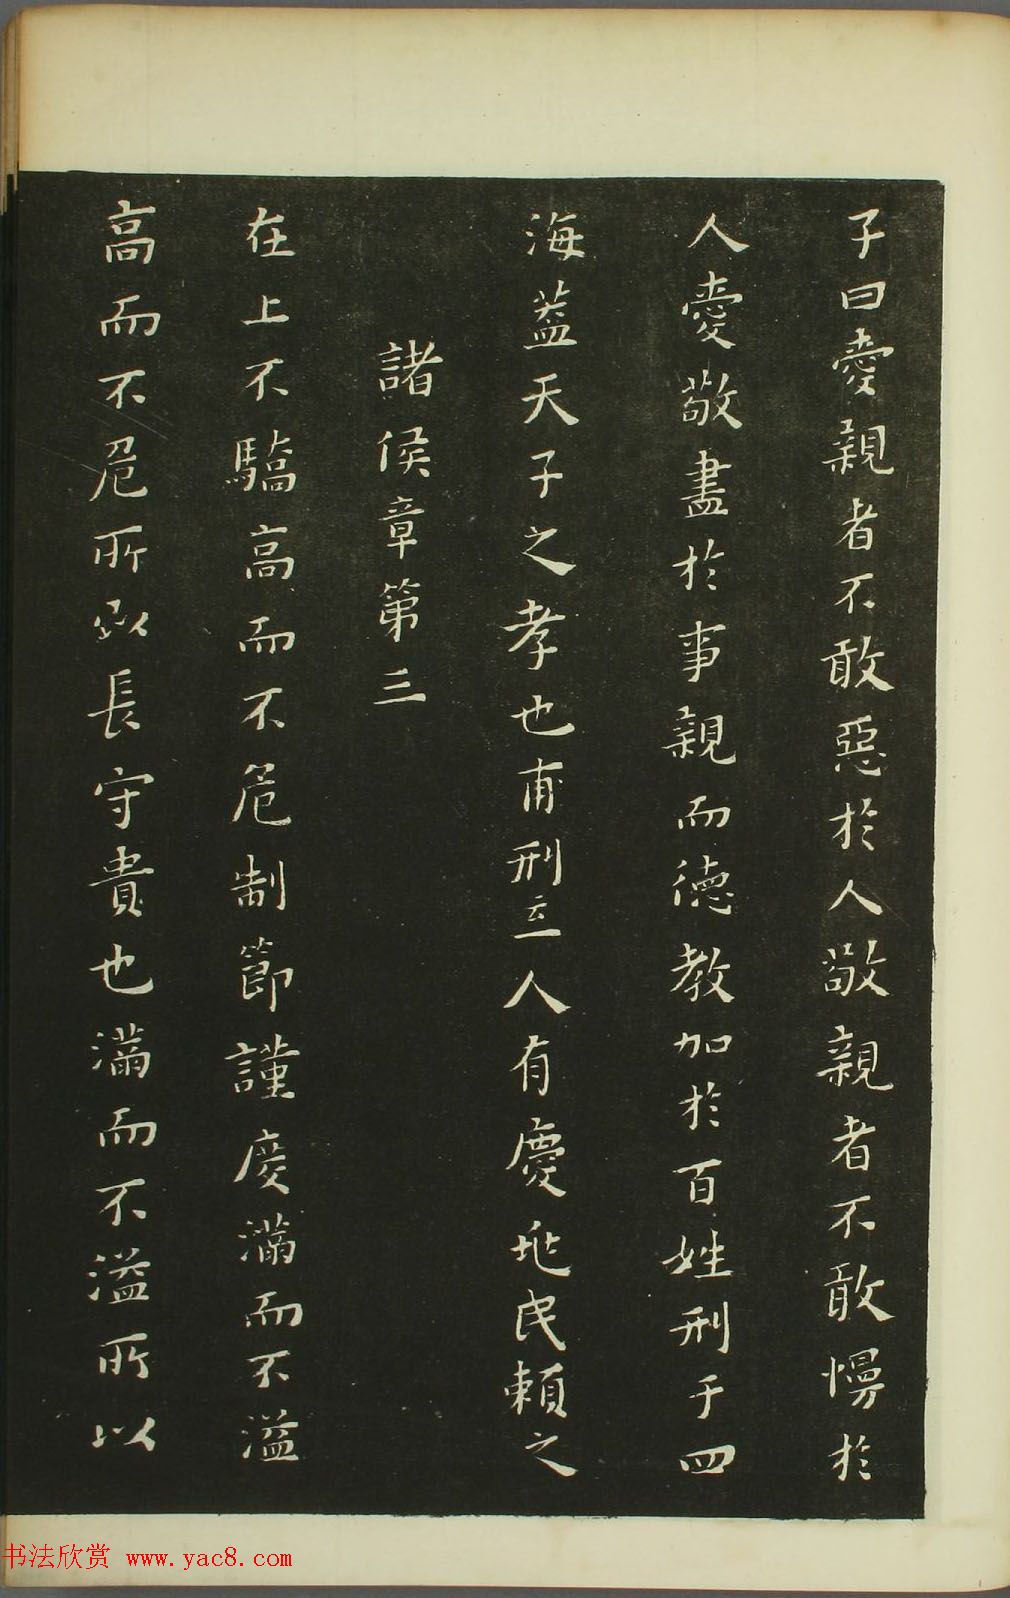 子曰愛親者不敢惡於人敬親者不敢慢於
人愛敬盡於事親而德教加於百姓刑于四
海蓋天子之孝也甫刑云一人有慶兆民賴之
諸侯章第三
在上不驕高而不危制節謹度滿而不溢
高而不危所以長守貴也滿而不溢所以
书法欣赏 www.yac8.com